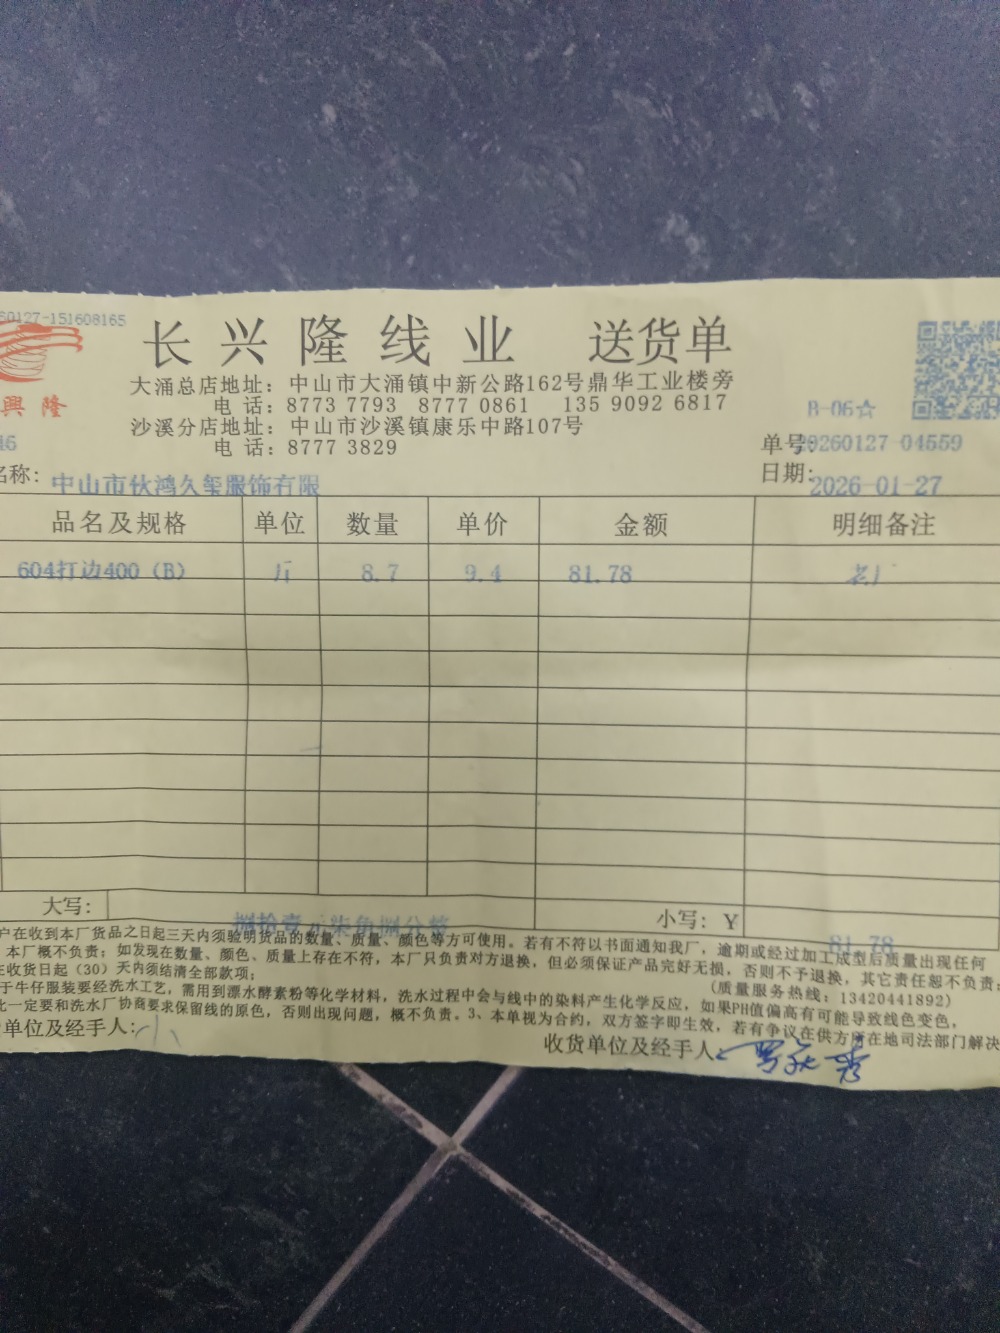 60127-151608165
长兴隆线业 送货单
興隆
大涌总店地址：中山市大涌镇中新公路162号鼎华工业楼旁
电 话：8773 7793 8777 0861 135 9092 6817
沙溪分店地址：中山市沙溪镇康乐中路107号
电 话：8777 3829
B-06☆
单号：20260127-04559
日期：2026-01-27
名称：中山市伙鸿久玺服饰有限
品名及规格 单位 数量 单价 金额 明细备注
604打边400（B） 斤 8.7 9.4 81.78 老厂
大写： 捌拾壹元柒角捌分整 小写：¥ 81.78
户在收到本厂货品之日起三天内须验明货品的数量、质量、颜色等方可使用。若有不符以书面通知我厂，逾期或经过加工成型后质量出现任何
本厂概不负责；如发现在数量、颜色、质量上存在不符，本厂只负责对方退换，但必须保证产品完好无损，否则不予退换，其它责任恕不负责；
收货日起（30）天内须结清全部款项；
（质量服务热线：13420441892）
于牛仔服装要经洗水工艺，需用到漂水酵素粉等化学材料，洗水过程中会与线中的染料产生化学反应，如果PH值偏高有可能导致线色变色，
此一定要和洗水厂协商要求保留线的原色，否则出现问题，概不负责。3、本单视为合约，双方签字即生效，若有争议在供方所在地司法部门解决
单位及经手人：
收货单位及经手人：